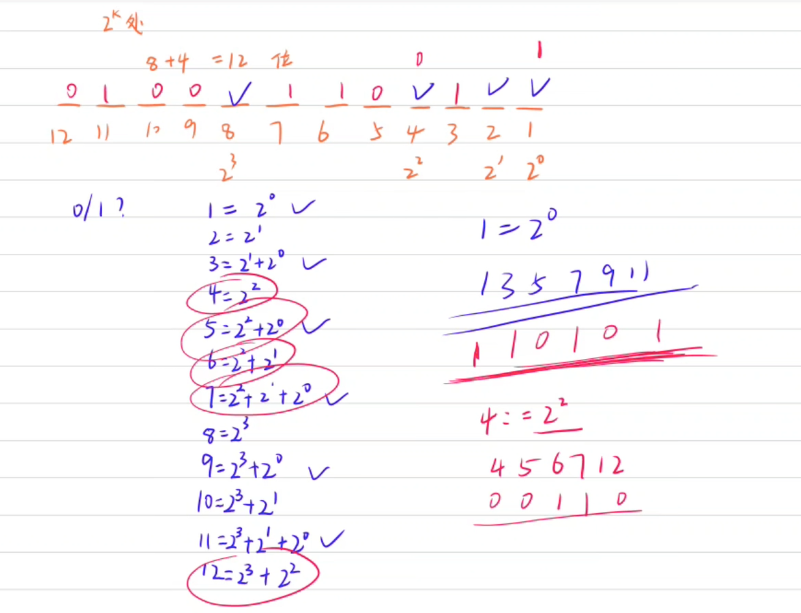 2^k 处
8+4 =12 位 0 1
0 1 0 0 ✓ 1 1 0 ✓ 1 ✓ ✓
12 11 10 9 8 7 6 5 4 3 2 1
2^3 2^2 2^1 2^0
0/1?
1 = 2^0 ✓
2=2^1
3=2^1+2^0 ✓
4=2^2
5=2^2+2^0 ✓
6=2^2+2^1
7=2^2+2^1+2^0 ✓
8=2^3
9=2^3+2^0 ✓
10=2^3+2^1
11=2^3+2^1+2^0 ✓
12=2^3+2^2
1=2^0
1 3 5 7 9 11
1 1 0 1 0 1
4:=2^2
4 5 6 7 12
0 0 1 1 0